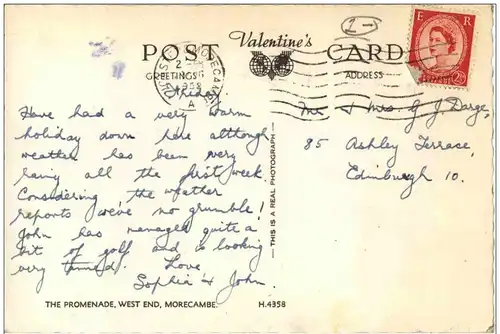 1-
POST Valentine's CARD
GREETINGS ADDRESS
E R
2½D
MORECAMBE
1958
A
Friday.
Have had a very warm
holiday down here although
weather has been very
rainy all the first week.
Considering the weather
reports we've no grumble!
John has managed quite a
bit of golf and is looking
very tanned. Love
Sophia & John.
Mr & Mrs. G. J. Darge,
85 Ashley Terrace,
Edinburgh 10.
THIS IS A REAL PHOTOGRAPH
THE PROMENADE, WEST END, MORECAMBE. H.4358